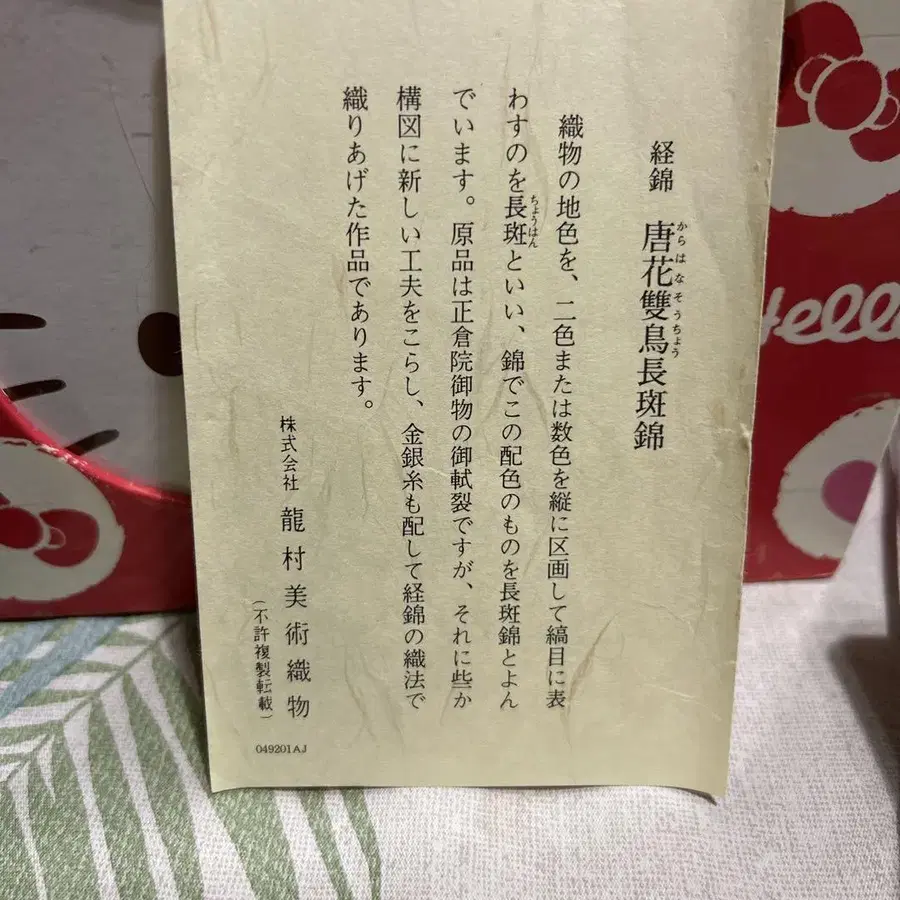 経錦 唐花雙鳥長斑錦
からはなそうちょう
織物の地色を、二色または数色を縦に区画して縞目に表
わすのを長斑といい、錦でこの配色のものを長斑錦とよん
ちょうはん
でいます。原品は正倉院御物の御軾裂ですが、それに些か
構図に新しい工夫をこらし、金銀糸も配して経錦の織法で
織りあげた作品であります。
株式会社 龍村美術織物
（不許複製転載）
049201AJ
Hello